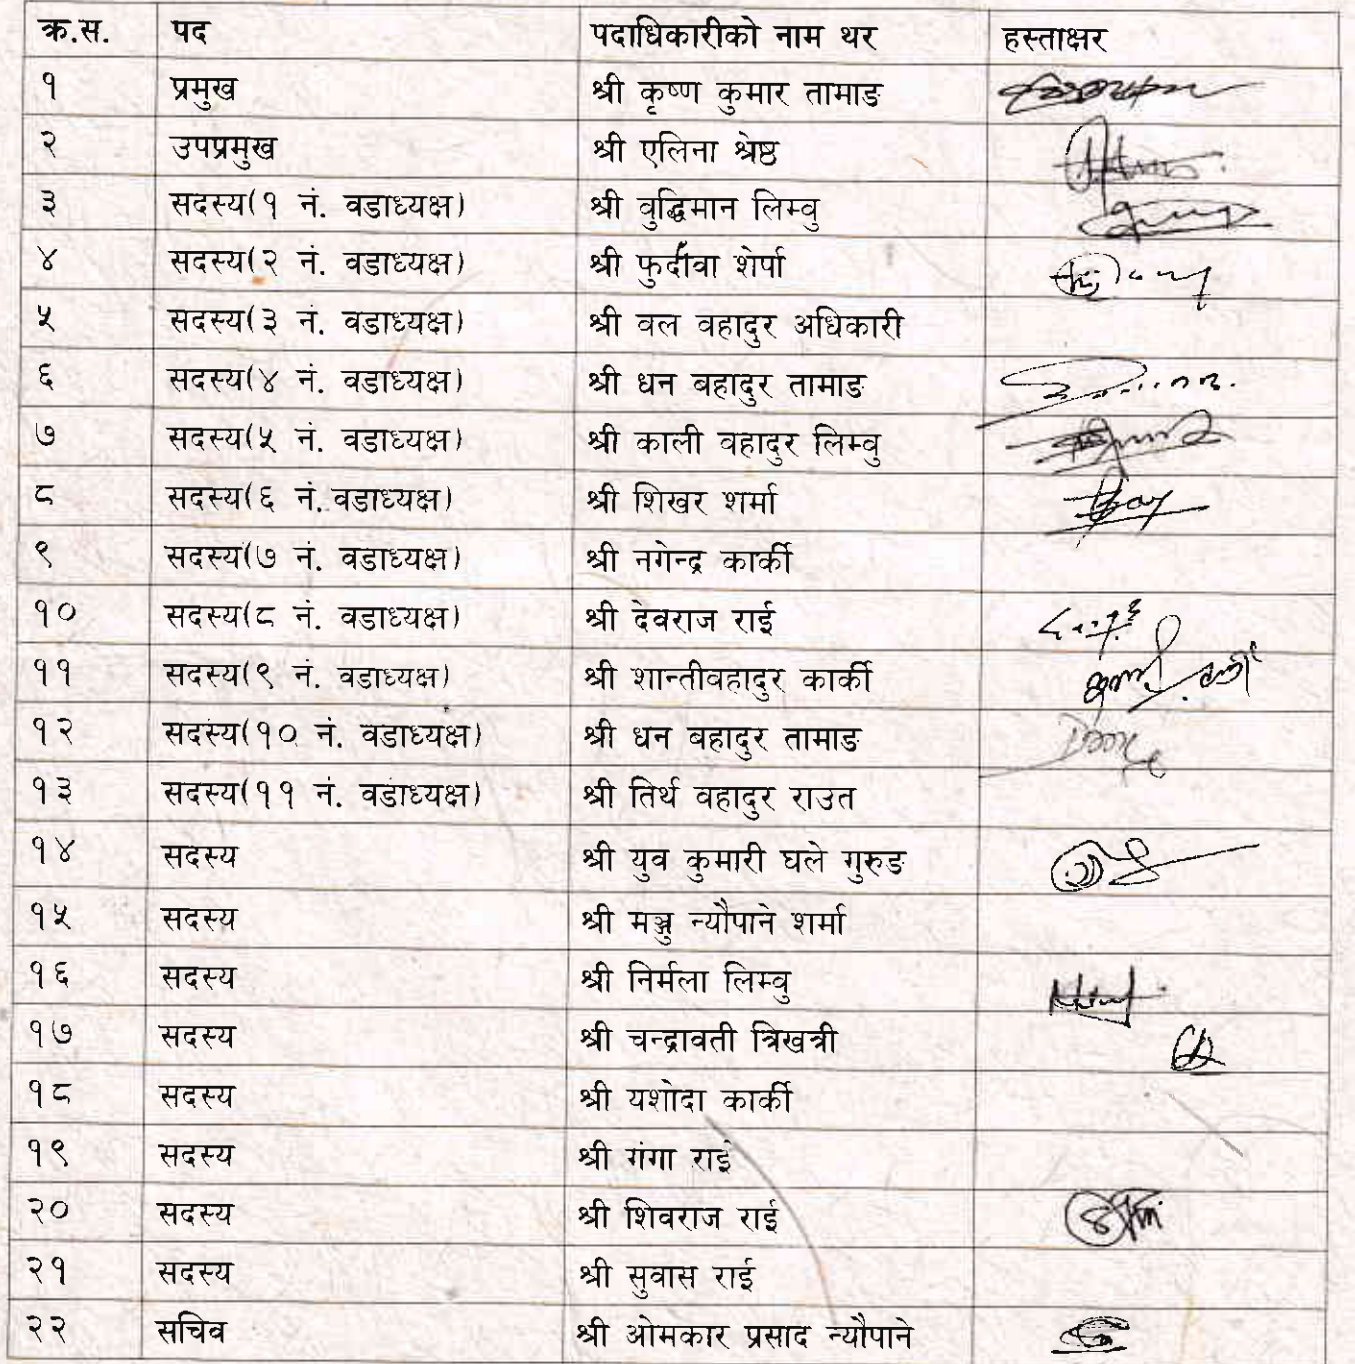 क्र.स. पद पदाधिकारीको नाम थर हस्ताक्षर
१ प्रमुख श्री कृष्ण कुमार तामाङ
२ उपप्रमुख श्री एलिना श्रेष्ठ
३ सदस्य(१ नं. वडाध्यक्ष) श्री वुद्धिमान लिम्वु
४ सदस्य(२ नं. वडाध्यक्ष) श्री फुर्दीवा शेर्पा
५ सदस्य(३ नं. वडाध्यक्ष) श्री वल वहादुर अधिकारी
६ सदस्य(४ नं. वडाध्यक्ष) श्री धन बहादुर तामाङ
७ सदस्य(५ नं. वडाध्यक्ष) श्री काली वहादुर लिम्वु
८ सदस्य(६ नं. वडाध्यक्ष) श्री शिखर शर्मा
९ सदस्य(७ नं. वडाध्यक्ष) श्री नगेन्द्र कार्की
१० सदस्य(८ नं. वडाध्यक्ष) श्री देवराज राई
११ सदस्य(९ नं. वडाध्यक्ष) श्री शान्तीवहादुर कार्की
१२ सदस्य(१० नं. वडाध्यक्ष) श्री धन बहादुर तामाङ
१३ सदस्य(११ नं. वडाध्यक्ष) श्री तिर्थ वहादुर राउत
१४ सदस्य श्री युव कुमारी घले गुरुङ
१५ सदस्य श्री मञ्जु न्यौपाने शर्मा
१६ सदस्य श्री निर्मला लिम्वु
१७ सदस्य श्री चन्द्रावती त्रिखत्री
१८ सदस्य श्री यशोदा कार्की
१९ सदस्य श्री गंगा राई
२० सदस्य श्री शिवराज राई
२१ सदस्य श्री सुवास राई
२२ सचिव श्री ओमकार प्रसाद न्यौपाने